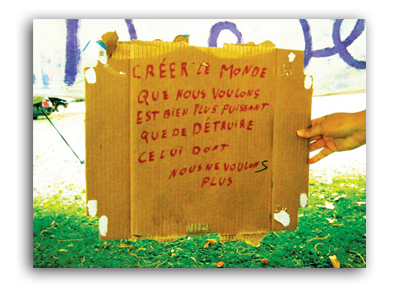 CRÉER LE MONDE
QUE NOUS VOULONS
EST BIEN PLUS PUISSANT
QUE DE DÉTRUIRE
CELUI DONT
NOUS NE VOULONS
PLUS